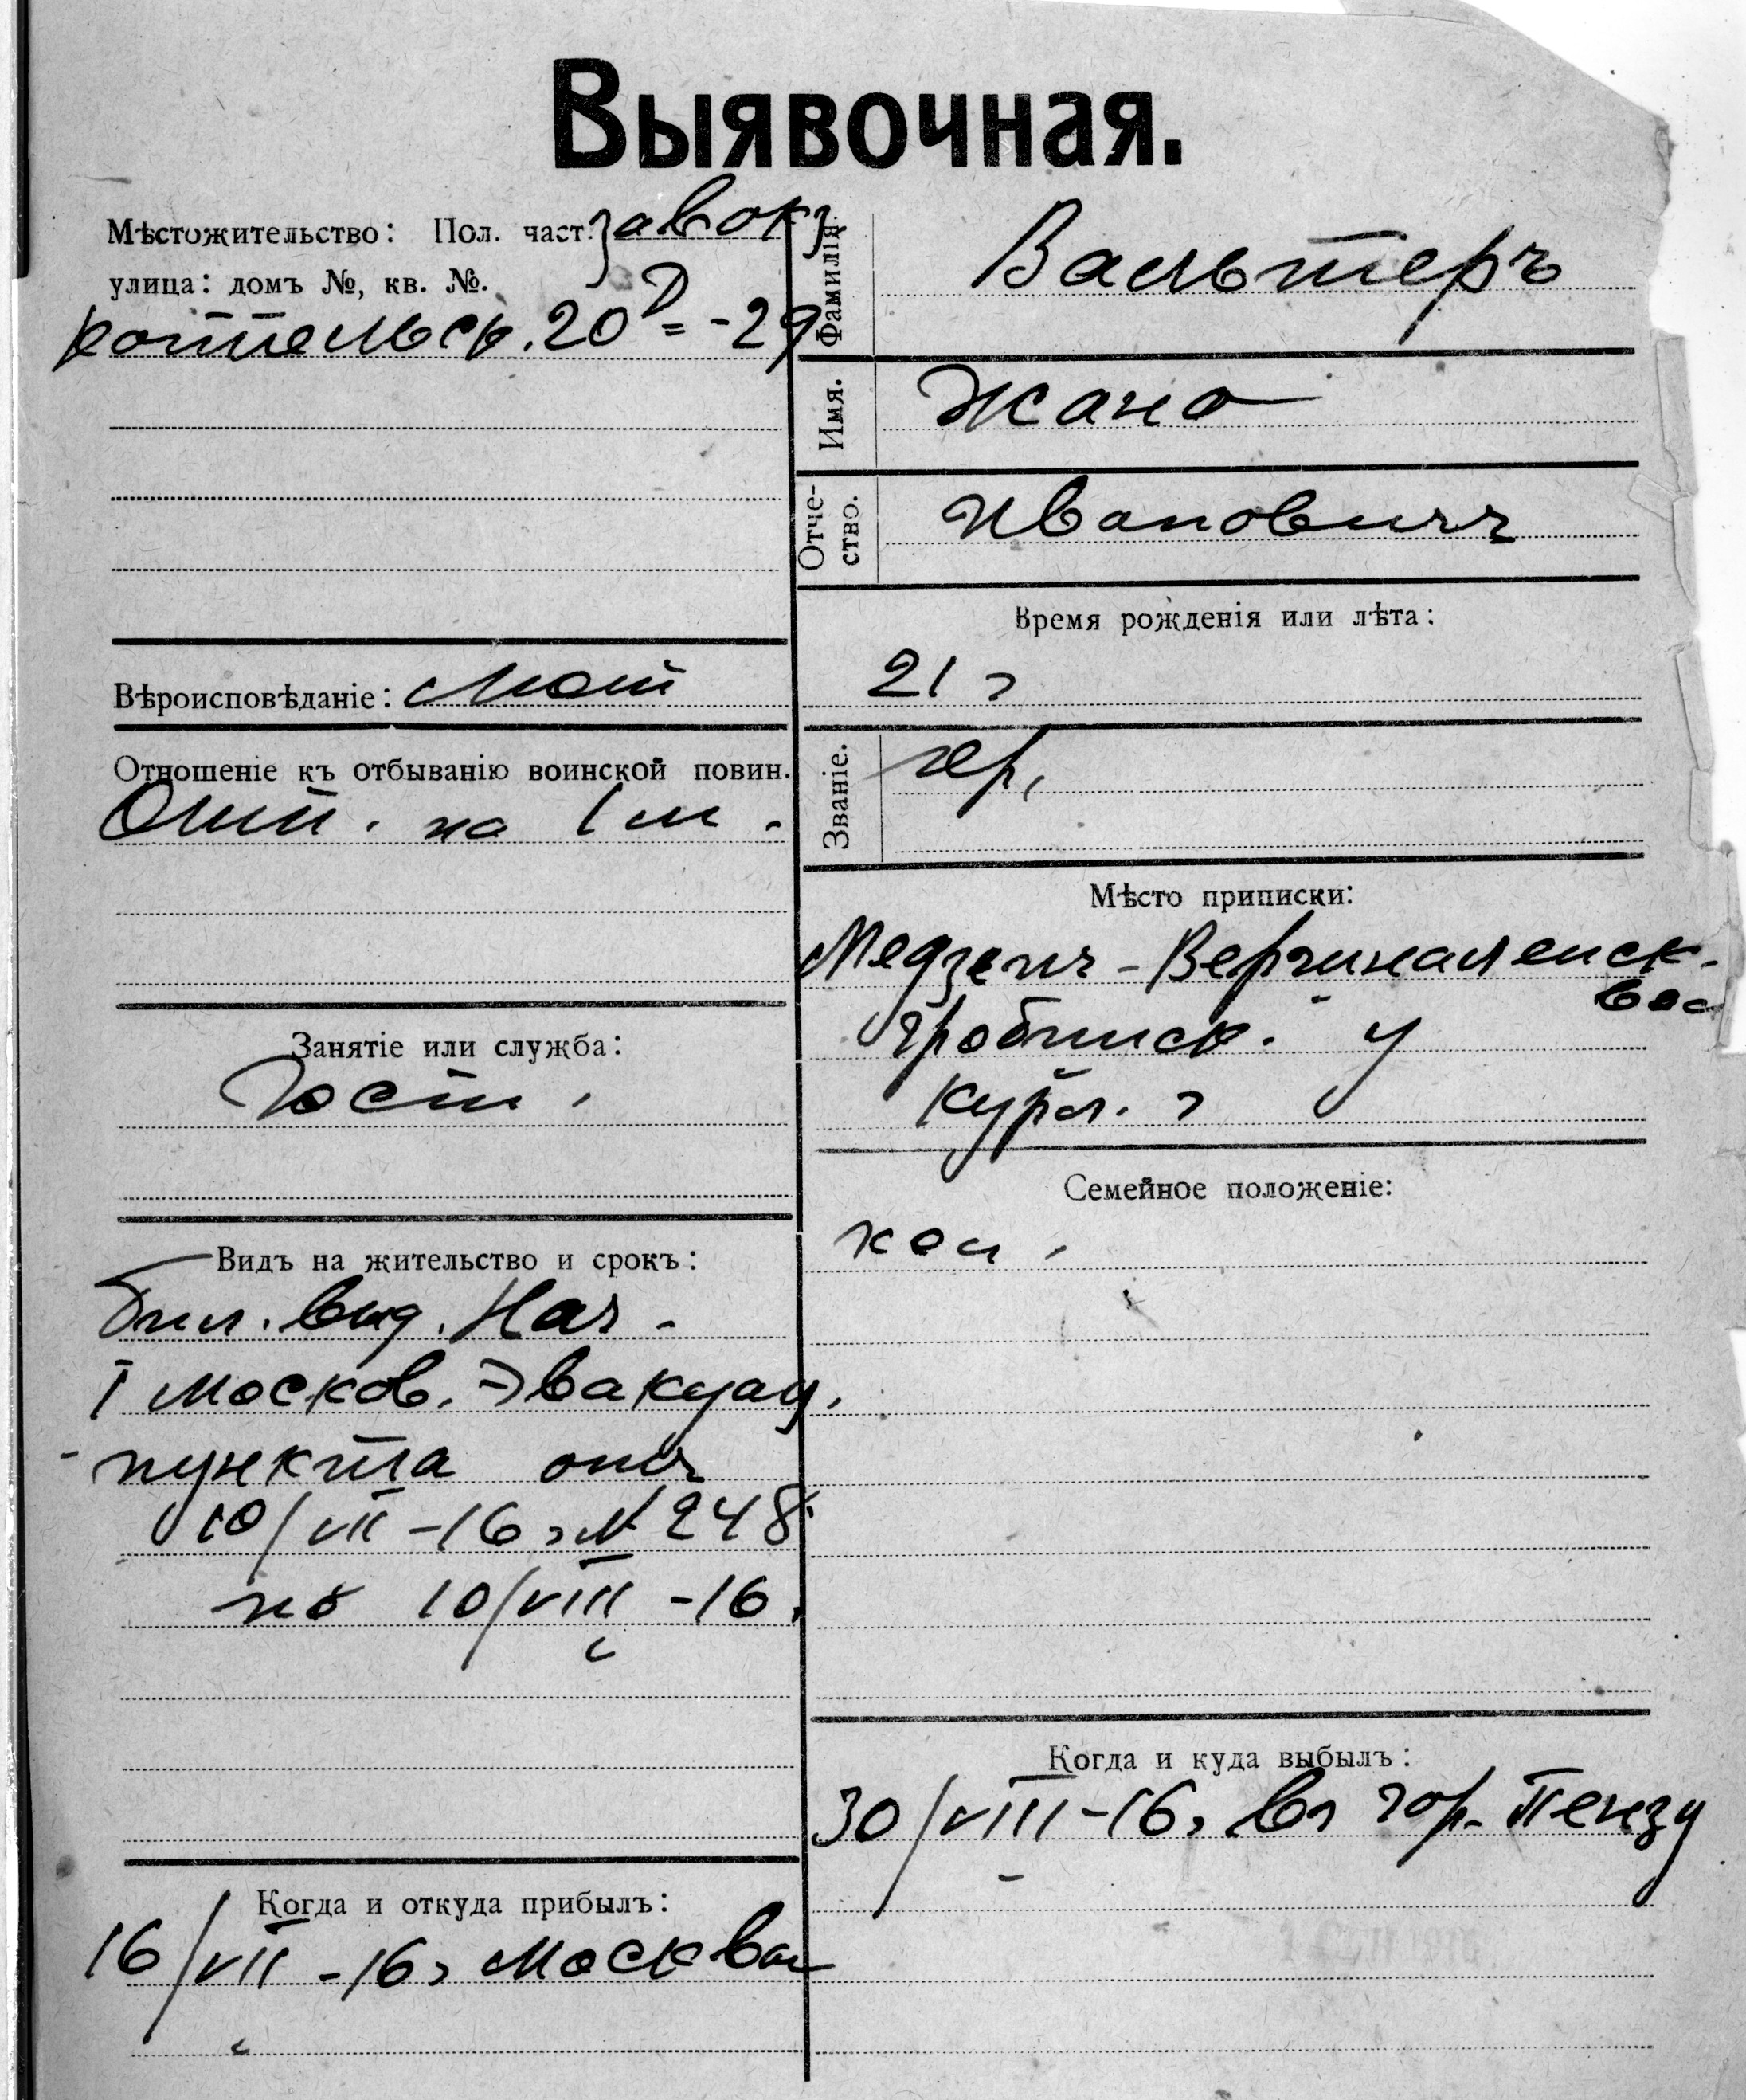 Выявочная.
Мѣстожительство: Пол. част. завокз
улица: домъ №, кв. №.
20 -29
Вѣроисповѣданіе: Лют
Отношеніе къ отбыванію воинской повин.
на 1 м.
Занятіе или служба:
Гост.
Видъ на жительство и срокъ:
бил. выд. Нач.
I Москов. Эвакуац.
пункта отъ
10/VII-16 г № 248
по 10/VIII-16.
Когда и откуда прибылъ:
16/VII-16 г Москвы
Фамилія
Вальтеръ
Имя.
Жано
Отчество.
Ивановичъ
Время рожденія или лѣта:
21 г
Званіе.
Мѣсто приписки:
вол
Гробинск. у
Курл. г
Семейное положеніе:
хол.
Когда и куда выбылъ:
30/VIII-16 г въ гор. Пензу